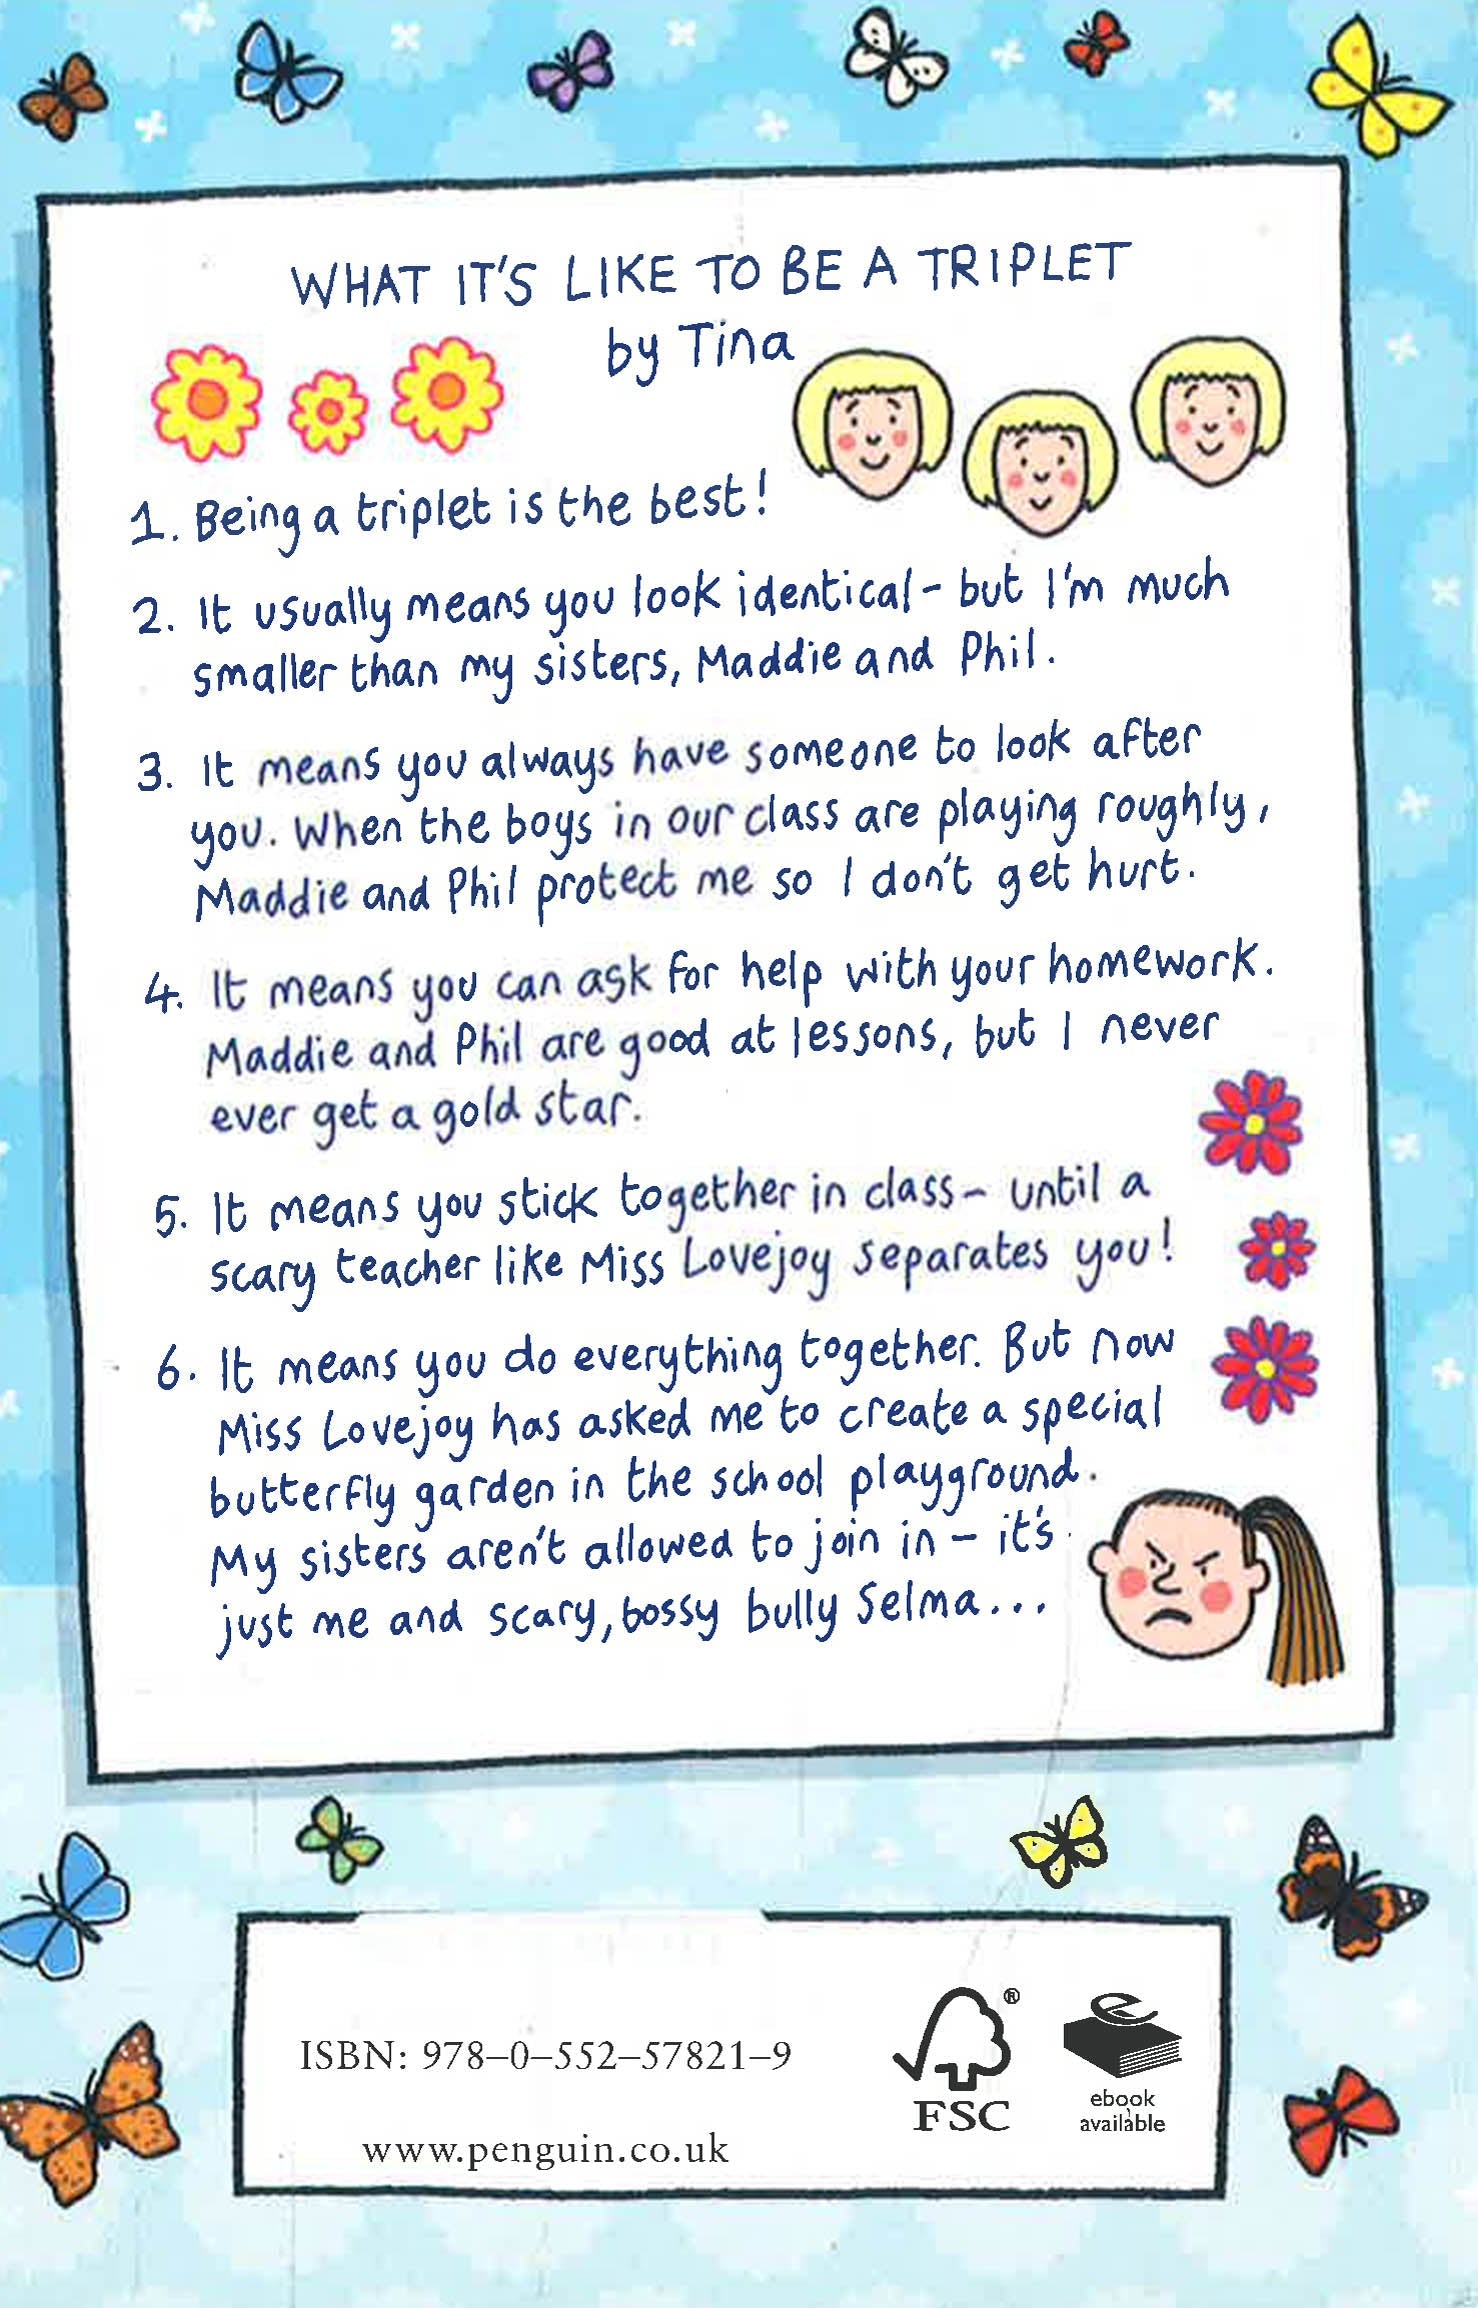 WHAT IT'S LIKE TO BE A TRIPLET
by Tina
1. Being a triplet is the best!
2. It usually means you look identical – but I'm much
smaller than my sisters, Maddie and Phil.
3. It means you always have someone to look after
you. When the boys in our class are playing roughly,
Maddie and Phil protect me so I don't get hurt.
4. It means you can ask for help with your homework.
Maddie and Phil are good at lessons, but I never
ever get a gold star.
5. It means you stick together in class – until a
scary teacher like Miss Lovejoy separates you!
6. It means you do everything together. But now
Miss Lovejoy has asked me to create a special
butterfly garden in the school playground.
My sisters aren't allowed to join in – it's
just me and scary, bossy bully Selma...
ISBN: 978–0–552–57821–9
www.penguin.co.uk
®
FSC
ebook
available